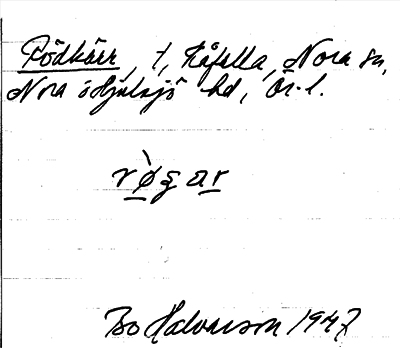 Rödkärr, t, Råfalla, Nora sn,
Nora o Hjulsjö hd, Ör. l.
rø̀gar
Bo Halvarson 1947